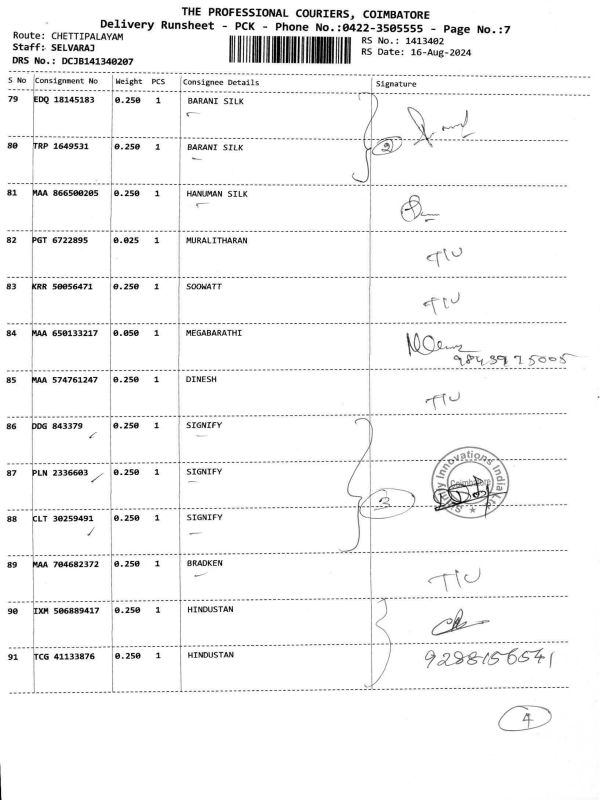 THE PROFESSIONAL COURIERS, COIMBATORE
Delivery Runsheet - PCK - Phone No.:0422-3505555 - Page No.:7
Route: CHETTIPALAYAM
RS No.: 1413402
Staff: SELVARAJ
RS Date: 16-Aug-2024
DRS No.: DCJB141340207
S No Consignment No Weight PCS Consignee Details Signature
79 EDQ 18145183 0.250 1 BARANI SILK
80 TRP 1649531 0.250 1 BARANI SILK 2
81 MAA 866500205 0.250 1 HANUMAN SILK
82 PGT 6722895 0.025 1 MURALITHARAN TIU
83 KRR 50056471 0.250 1 SOOWATT TIU
84 MAA 650133217 0.050 1 MEGABARATHI
9843975005
85 MAA 574761247 0.250 1 DINESH TIU
86 DDG 843379 0.250 1 SIGNIFY
87 PLN 2336603 0.250 1 SIGNIFY 3
Innovations India
Coimbatore
88 CLT 30259491 0.250 1 SIGNIFY
89 MAA 704682372 0.250 1 BRADKEN TIU
90 IXM 506889417 0.250 1 HINDUSTAN
91 TCG 41133876 0.250 1 HINDUSTAN 9288156541
4